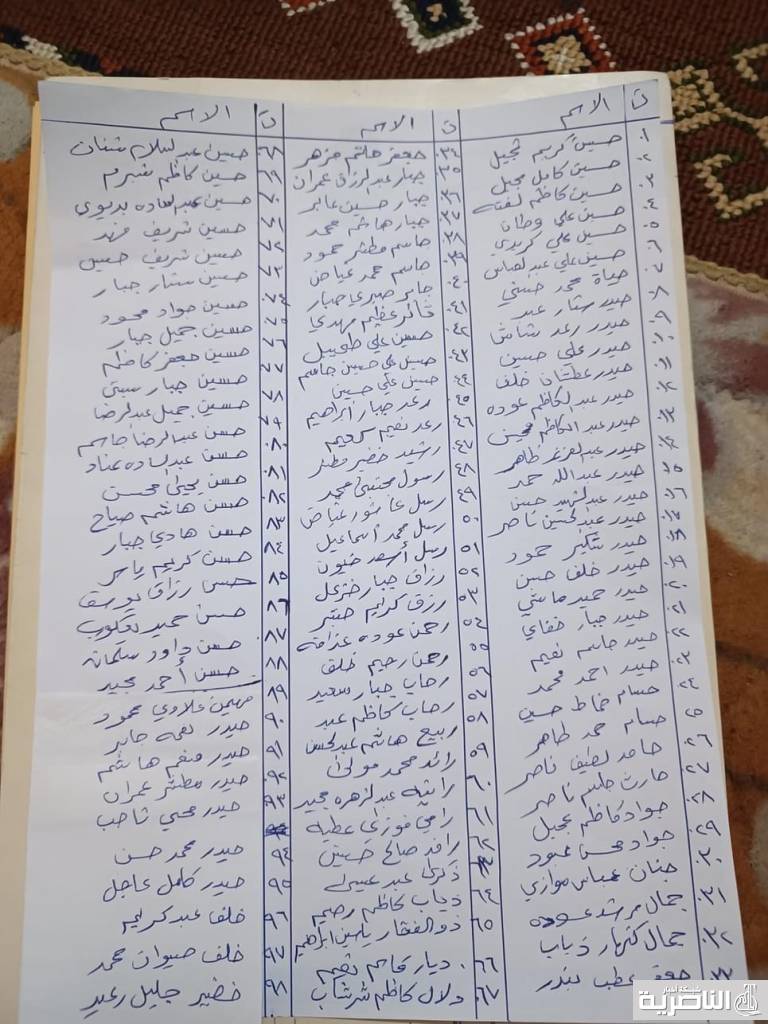 ت الاسم
١ حسين كريم عجيل
٢ حسين كامل عجيل
٣ حسين كاظم لفته
٤ حسين علي وطان
٥ حسين علي كريدي
٦ حسين علي عبد العباس
٧ حياة محمد حسني
٨ حيدر ستار عبد
٩ حيدر رعد شاش
١٠ حيدر علي حسين
١١ حيدر عطشان خلف
١٢ حيدر عبد الكاظم عوده
١٣ حيدر عبد الكاظم محيسن
١٤ حيدر عبد العزيز طاهر
١٥ حيدر عبد الله حمد
١٦ حيدر عبد الشهيد حسن
١٧ حيدر عبد الحسين ناصر
١٨ حيدر شنيتر حمود
١٩ حيدر خلف حسن
٢٠ حيدر حميد ماشي
٢١ حيدر جبار خفاي
٢٢ حيدر جاسم نعيم
٢٣ حيدر احمد محمد
٢٤ حسام خماط حسين
٢٥ حسام حمد طاهر
٢٦ حامد لطيف ناصر
٢٧ حارث حليم ناصر
٢٨ جواد كاظم عجيل
٢٩ جواد محسن عبود
٣٠ جنان عباس موازي
٣١ جمال مرشد عوده
٣٢ جمال كنهار ذياب
٣٣ جعفر عطب بندر
ت الاسم
٣٤ جعفر حاتم مزهر
٣٥ جبار عبد الرزاق عمران
٣٦ جبار حسين عابر
٣٧ جبار هاشم محمد
٣٨ جاسم مطشر حمود
٣٩ جاسم حمد عياض
٤٠ جابر صبري جبار
٤١ ثائر عظيم مهدي
٤٢ حسن علي طعيبل
٤٣ حسين علي حسين جاسم
٤٤ حسين علي حسين
٤٥ رعد جبار ابراهيم
٤٦ رعد نعيم كريم
٤٧ رشيد خضير مطر
٤٨ رسول مجتبى محمد
٤٩ رسل عاشور عياض
٥٠ رسل محمد اسماعيل
٥١ رسل أسعد ضيون
٥٢ رزاق جبار خزعل
٥٣ رزق كرايم حنتير
٥٤ رحمن عوده عذافه
٥٥ رحمن رحيم خلف
٥٦ رحاب جبار سعيد
٥٧ رحاب كاظم عبد
٥٨ ربيع هاشم عبد الحسن
٥٩ رائد محمد مولى
٦٠ رانيه عبد الزهره مجيد
٦١ رامي فوزي عطيه
٦٢ رافد صالح حسين
٦٣ ذكرى عبد عيسى
٦٤ ذياب كاظم رحيم
٦٥ ذو الفقار ياسين ابراهيم
٦٦ ديار قاسم نعيم
٦٧ دلال كاظم شرشاب
ت الاسم
٦٨ حسين عبد السلام شنان
٦٩ حسين كاظم شبرم
٧٠ حسين عبد الساده بديوي
٧١ حسين شريف فهد
٧٢ حسين شريف حسين
٧٣ حسين ستار جبار
٧٤ حسين جواد محمود
٧٥ حسين جميل جبار
٧٦ حسين جعفر كاظم
٧٧ حسين جبار سبتي
٧٨ حسين جميل عبد الرضا
٧٩ حسن عبد الرضا جاسم
٨٠ حسن عبد الساده عناد
٨١ حسن يحيى محسن
٨٢ حسن هاشم صباح
٨٣ حسن هادي جبار
٨٤ حسن كريم ياسر
٨٥ حسن رزاق يوسف
٨٦ حسن حميد يعكوب
٨٧ حسن داود سلمان
٨٨ حسن أحمد مجيد
٨٩ مهيمن علاوي حمود
٩٠ حيدر نعمه جابر
٩١ حيدر منعم هاشم
٩٢ حيدر مطشر عمران
٩٣ حيدر محيي شاحب
٩٤ حيدر محمد حسن
٩٥ حيدر كامل عاجل
٩٦ خلف عبد كريم
٩٧ خلف صيوان محمد
٩٨ خضير جليل رعيد
شبكة أخبار
الناصرية